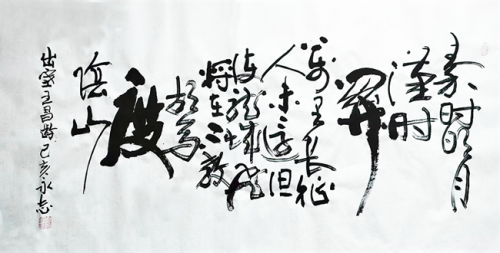 秦时明月
汉时
关
万里长征
人未还但
使龙城飞
将在不教
胡马
度
阴山
出塞王昌龄己亥永志